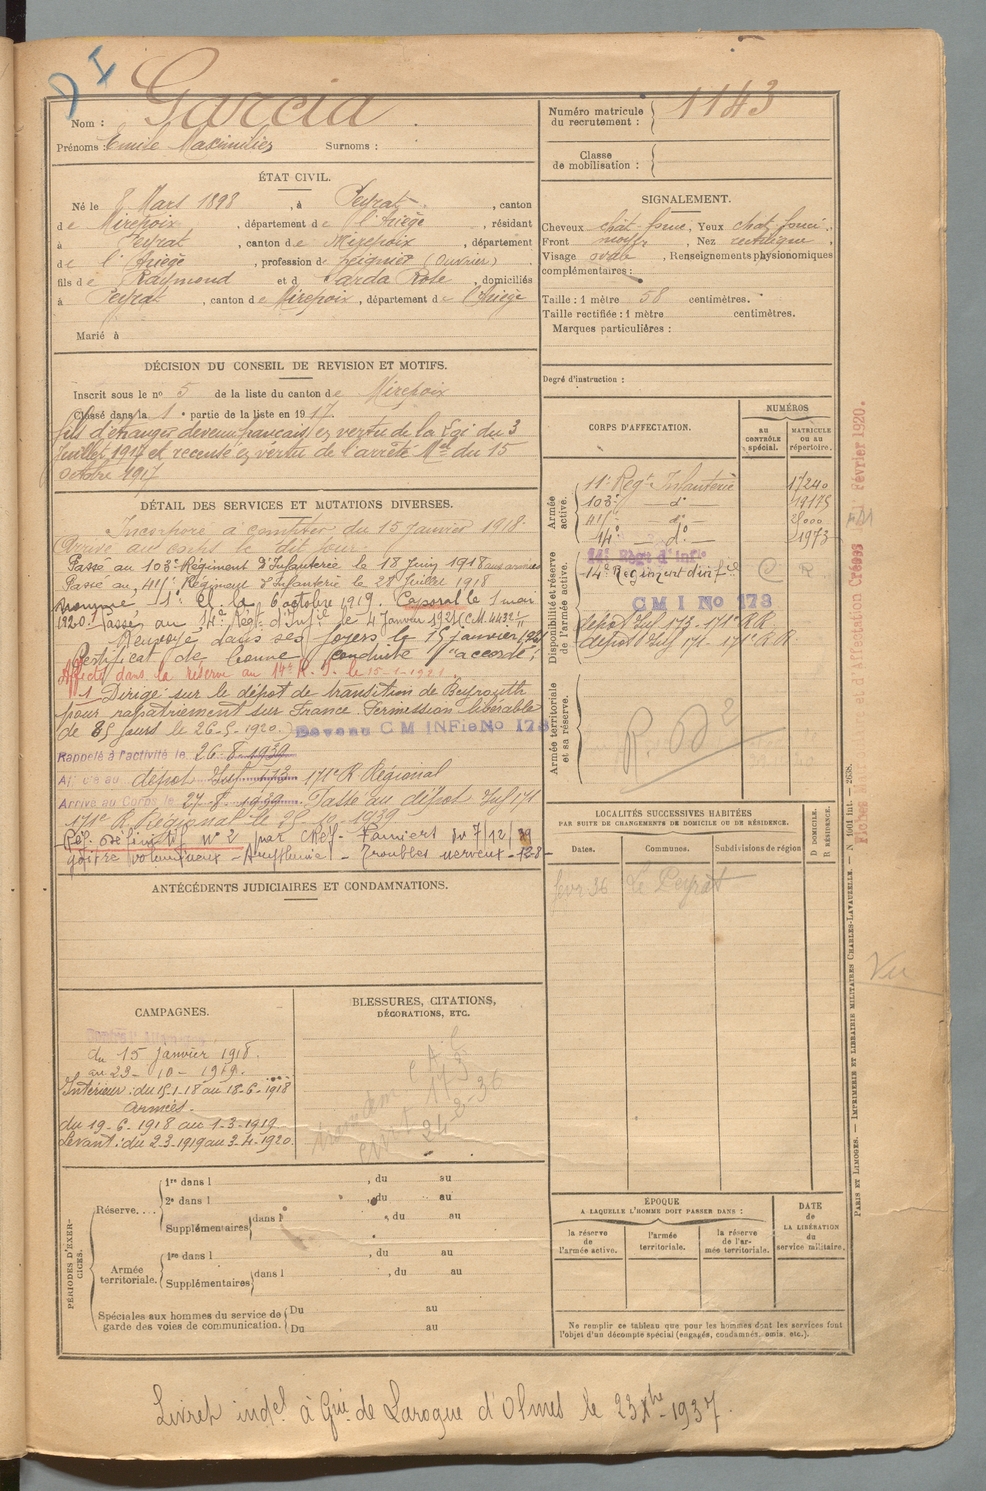 D I
Garcia
Nom :
Prénoms : Emile Maximilien Surnoms :
ÉTAT CIVIL.
Né le 8 Mars 1898 , à Peyrat , canton
de Mirepoix , département de l'Ariège , résidant
à Peyrat , canton de Mirepoix , département
de l'Ariège , profession de peignier (ouvrier)
fils de Raymond et de Sarda Rose , domiciliés
à Peyrat , canton de Mirepoix , département de l'Ariège
Marié à
DÉCISION DU CONSEIL DE REVISION ET MOTIFS.
Inscrit sous le no 5 de la liste du canton de Mirepoix
Classé dans la 1e partie de la liste en 1917.
fils d'étranger devenu français en vertu de la Loi du 3
Juillet 1917 et recensé en vertu de l'arrêté Mel du 15
octobre 1917
DÉTAIL DES SERVICES ET MUTATIONS DIVERSES.
Incorporé à compter du 15 janvier 1918.
Arrivé au corps le dit jour.
Passé au 103e Régiment d'Infanterie le 18 Juin 1918 aux armées
Passé au 411e Régiment d'Infanterie le 27 Juillet 1918
Nommé 1e Cl. le 6 octobre 1919. Caporal le 1 mai
1920. Passé au 14e Régt d'Infie le 4 Janvier 1921
Renvoyé dans ses foyers le 15 janvier 1921
Certificat de bonne conduite "accordé".
Affecté dans la réserve au 14e R. I. le 15-1-1921
Dirigé sur le dépôt de transition de Beyrouth
pour rapatriement sur France. Permission libérable
de 85 jours le 26-5-1920. Devenu C M INFie No 173
Rappelé à l'activité le 26-8-1939
Affecté au dépôt Inf 173 171e R Régional
Arrivé au Corps le 27-8-1939. Passé au dépôt Inf 171
171e R Régional le 25-10-1939
Réf. définitif No 2 par CRéf. Pamiers du 7/12/39
goitre volumineux - Troubles nerveux -
ANTÉCÉDENTS JUDICIAIRES ET CONDAMNATIONS.
CAMPAGNES.
Contre l'Allemagne
du 15 janvier 1918.
au 23-10-1919.
Intérieur : du 15-1-18 au 18-6-1918
Armées.
du 19-6-1918 au 1-3-1919
Levant : du 2-3-1919 au 3-4-1920.
BLESSURES, CITATIONS,
DÉCORATIONS, ETC.
24-2-36
PÉRIODES D'EXERCICES.
Réserve....
1re dans l , du au
2e dans l , du au
Supplémentaires dans l , du au
Armée territoriale.
1re dans l , du au
Supplémentaires dans l , du au
Spéciales aux hommes du service de
garde des voies de communication.
Du au
Du au
Numéro matricule
du recrutement : 1143
Classe
de mobilisation :
SIGNALEMENT.
Cheveux chât. foncé , Yeux chat foncé.
Front moyen , Nez rectiligne ,
Visage ovale , Renseignements physionomiques
complémentaires :
Taille : 1 mètre 58 centimètres.
Taille rectifiée : 1 mètre centimètres.
Marques particulières :
Degré d'instruction :
CORPS D'AFFECTATION.
NUMÉROS
AU CONTRÔLE spécial.
MATRICULE ou au répertoire.
Armée active.
11e Régt Infanterie 17240
103e — do — 19175
411e — do —
14e — do — 1973
Disponibilité et réserve de l'armée active.
14e Régt d'Infie
14e Régiment d'infie C R
C M I No 173
dépôt Inf 173 - 171e R.R.
dépôt Inf 171 - 171e R.R.
Armée territoriale et sa réserve.
R D 2
LOCALITÉS SUCCESSIVES HABITÉES
PAR SUITE DE CHANGEMENTS DE DOMICILE OU DE RÉSIDENCE.
Dates. Communes. Subdivisions de région
D DOMICILE.
R RÉSIDENCE.
Le Peyrat
ÉPOQUE
A LAQUELLE L'HOMME DOIT PASSER DANS :
la réserve de l'armée active.
l'armée territoriale.
la réserve de l'armée territoriale.
DATE de LA LIBÉRATION du service militaire.
Ne remplir ce tableau que pour les hommes dont les services font
l'objet d'un décompte spécial (engagés, condamnés, omis, etc.).
Février 1920.
Vu
PARIS ET LIMOGES. — IMPRIMERIE ET LIBRAIRIE MILITAIRES CHARLES-LAVAUZELLE.
Livret indel à Gie de Laroque d'Olmes le 23 Xbre 1937.